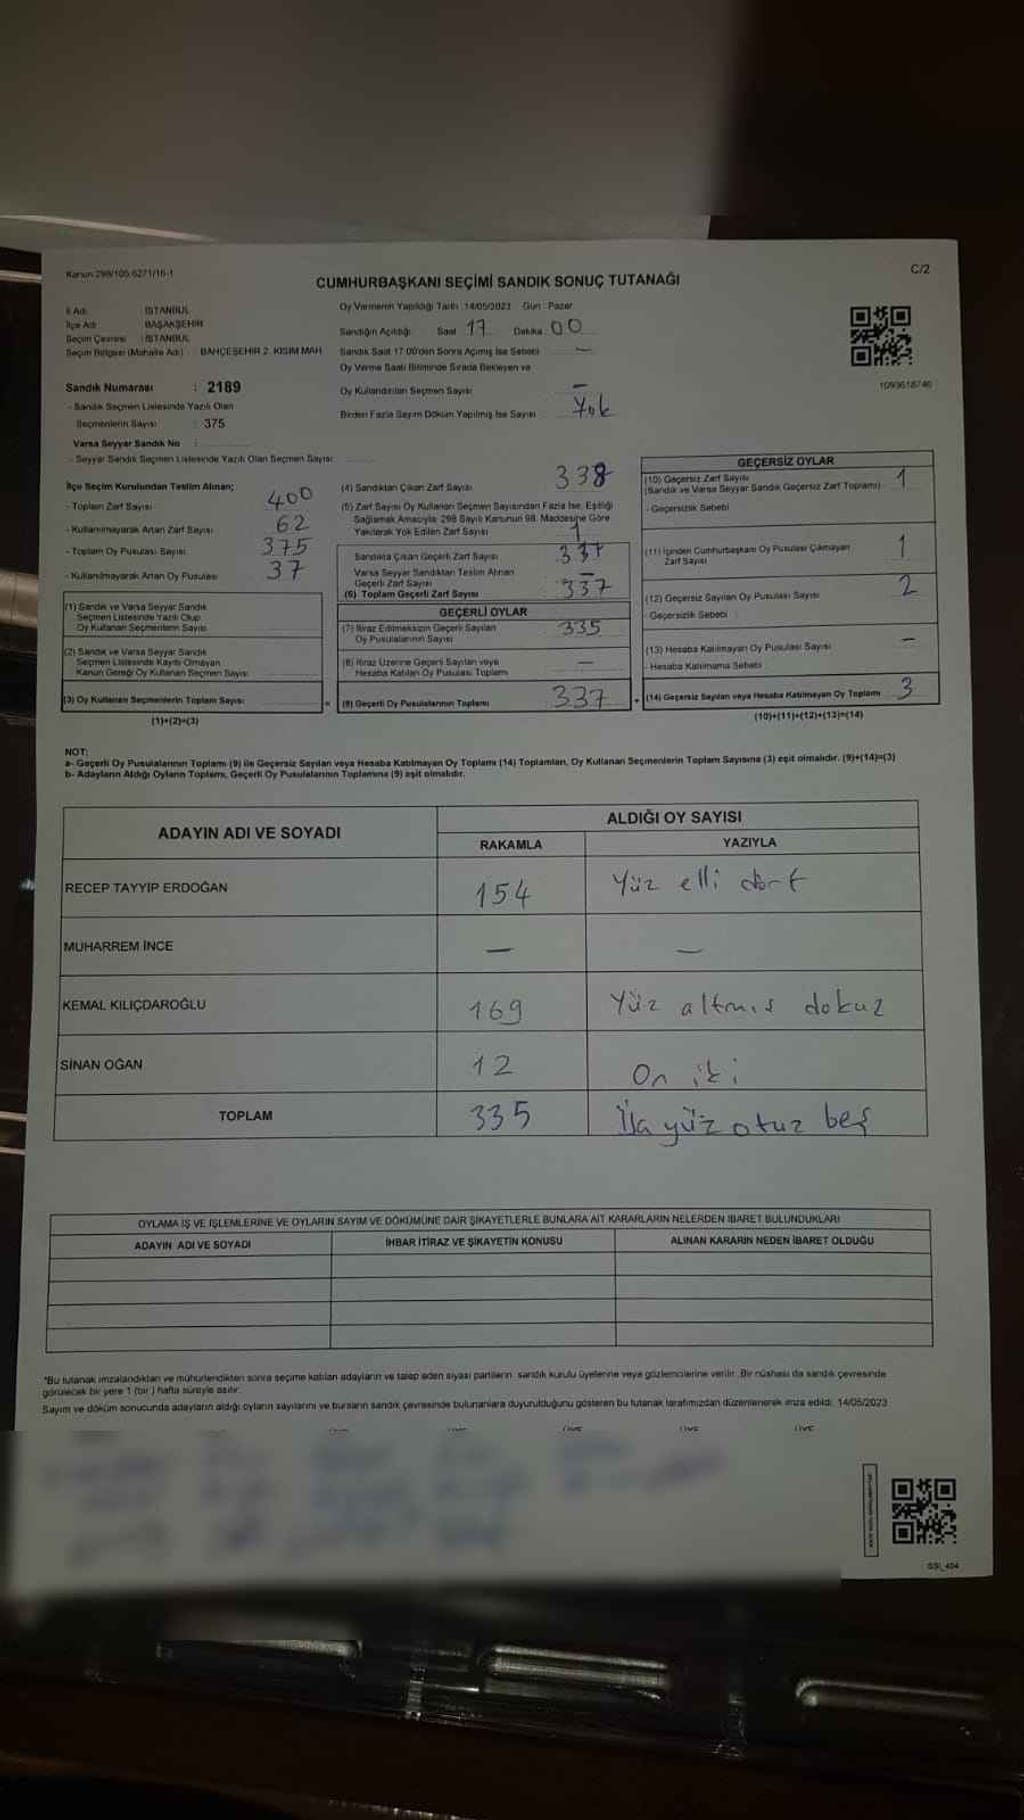 Kanun 298/105 6271/16-1
C/2
CUMHURBAŞKANI SEÇİMİ SANDIK SONUÇ TUTANAĞI
İl Adı : İSTANBUL
İlçe Adı : BAŞAKŞEHİR
Seçim Çevresi : İSTANBUL
Seçim Bölgesi (Mahalle Adı) : BAHÇEŞEHİR 2. KISIM MAH.
Sandık Numarası : 2189
- Sandık Seçmen Listesinde Yazılı Olan
Seçmenlerin Sayısı : 375
Varsa Seyyar Sandık No :
- Seyyar Sandık Seçmen Listesinde Yazılı Olan Seçmen Sayısı
Oy Vermenin Yapıldığı Tarih : 14/05/2023 Gün : Pazar
Sandığın Açıldığı Saat 17 Dakika 00
Sandık Saat 17.00'den Sonra Açılmış İse Sebebi —
Oy Verme Saati Bitiminde Sırada Bekleyen ve
Oy Kullandırılan Seçmen Sayısı —
Birden Fazla Sayım Döküm Yapılmış İse Sayısı Yok
1093618746
İlçe Seçim Kurulundan Teslim Alınan;
- Toplam Zarf Sayısı 400
- Kullanılmayarak Artan Zarf Sayısı 62
- Toplam Oy Pusulası Sayısı 375
- Kullanılmayarak Artan Oy Pusulası 37
(1) Sandık ve Varsa Seyyar Sandık
Seçmen Listesinde Yazılı Olup
Oy Kullanan Seçmenlerin Sayısı
(2) Sandık ve Varsa Seyyar Sandık
Seçmen Listesinde Kayıtlı Olmayan
Kanun Gereği Oy Kullanan Seçmen Sayısı
(3) Oy Kullanan Seçmenlerin Toplam Sayısı
(1)+(2)=(3)
(4) Sandıktan Çıkan Zarf Sayısı 338
(5) Zarf Sayısı Oy Kullanan Seçmen Sayısından Fazla İse, Eşitliği
Sağlamak Amacıyla 298 Sayılı Kanunun 98. Maddesine Göre
Yakılarak Yok Edilen Zarf Sayısı 1
Sandıkta Çıkan Geçerli Zarf Sayısı 337
Varsa Seyyar Sandıktan Teslim Alınan
Geçerli Zarf Sayısı —
(6) Toplam Geçerli Zarf Sayısı 337
GEÇERLİ OYLAR
(7) İtiraz Edilmeksizin Geçerli Sayılan
Oy Pusulalarının Sayısı 335
(8) İtiraz Üzerine Geçerli Sayılan veya
Hesaba Katılan Oy Pusulası Toplamı —
= (9) Geçerli Oy Pusulalarının Toplamı 337
GEÇERSİZ OYLAR
(10) Geçersiz Zarf Sayısı
(Sandık ve Varsa Seyyar Sandık Geçersiz Zarf Toplamı) 1
- Geçersizlik Sebebi
(11) İçinden Cumhurbaşkanı Oy Pusulası Çıkmayan
Zarf Sayısı 1
(12) Geçersiz Sayılan Oy Pusulası Sayısı 2
- Geçersizlik Sebebi
(13) Hesaba Katılmayan Oy Pusulası Sayısı —
- Hesaba Katılmama Sebebi
+ (14) Geçersiz Sayılan veya Hesaba Katılmayan Oy Toplamı 3
(10)+(11)+(12)+(13)=(14)
NOT:
a- Geçerli Oy Pusulalarının Toplamı (9) ile Geçersiz Sayılan veya Hesaba Katılmayan Oy Toplamı (14) Toplamları, Oy Kullanan Seçmenlerin Toplam Sayısına (3) eşit olmalıdır. (9)+(14)=(3)
b- Adayların Aldığı Oyların Toplamı, Geçerli Oy Pusulalarının Toplamına (9) eşit olmalıdır.
ADAYIN ADI VE SOYADI
ALDIĞI OY SAYISI
RAKAMLA YAZIYLA
RECEP TAYYİP ERDOĞAN 154 Yüz elli dört
MUHARREM İNCE — —
KEMAL KILIÇDAROĞLU 169 Yüz altmış dokuz
SİNAN OĞAN 12 On iki
TOPLAM 335 yüz otuz beş
OYLAMA İŞ VE İŞLEMLERİNE VE OYLARIN SAYIM VE DÖKÜMÜNE DAİR ŞİKAYETLERLE BUNLARA AİT KARARLARIN NELERDEN İBARET BULUNDUKLARI
ADAYIN ADI VE SOYADI
İHBAR İTİRAZ VE ŞİKAYETİN KONUSU
ALINAN KARARIN NEDEN İBARET OLDUĞU
*Bu tutanak imzalandıktan ve mühürlendikten sonra seçime katılan adayların ve talep eden siyasi partilerin sandık kurulu üyelerine veya gözlemcilerine verilir. Bir nüshası da sandık çevresinde
görülecek bir yere 1 (bir) hafta süreyle asılır.
Sayım ve döküm sonucunda adayların aldığı oyların sayılarını ve bunların sandık çevresinde bulunanlara duyurulduğunu gösteren bu tutanak tarafımızdan düzenlenerek imza edildi. 14/05/2023